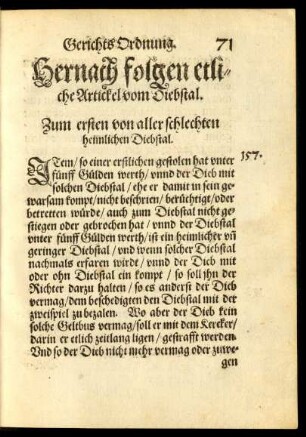 Gerichts Ordnung. 71
Hernach folgen etli-
che Artickel vom Diebstal.
Zum ersten von aller schlechten
heimlichen Diebstal.
ITem / so einer erstlichen gestolen hat vnter 157.
fünff Gülden werth / vnnd der Dieb mit
solchen Diebstal / ehe er damit in sein ge-
warsam kompt / nicht beschrien / berüchtigt / oder
betretten würde / auch zum Diebstal nicht ge-
stiegen oder gebrochen hat / vnnd der Diebstal
vnter fünff Gülden werth / ist ein heimlicher vñ
geringer Diebstal / vnd wenn solcher Diebstal
nachmals erfaren wirde / vnnd der Dieb mit
oder ohn Diebstal ein kompt / so soll jhn der
Richter darzu halten / so es anderst der Dieb
vermag / dem beschedigten den Diebstal mit der
zweispiel zu bezalen. Wo aber der Dieb kein
solche Geltbus vermag / soll er mit dem Kercker /
darin er etlich zeitlang ligen / gestrafft werden.
Vnd so der Dieb nicht mehr vermag oder zuwe-
gen